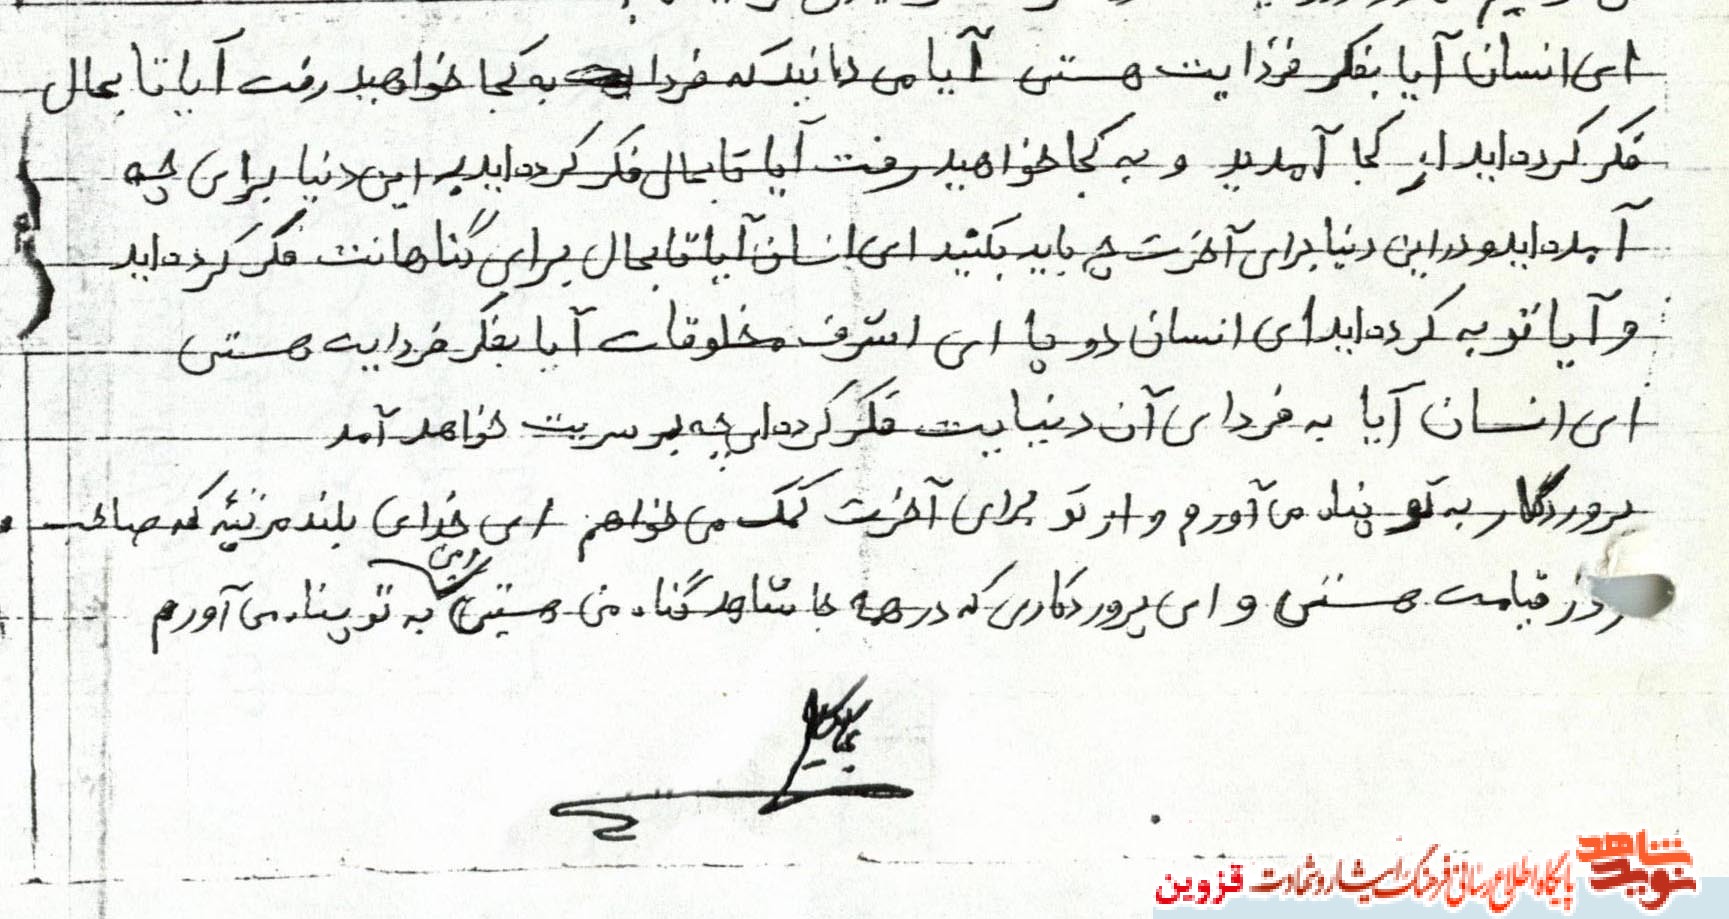 ای انسان آیا بفکر فردایت هستی آیا می دانید که فردا به کجا خواهید رفت آیا تا بحال
فکر کرده اید از کجا آمدید و به کجا خواهید رفت آیا تا بحال فکر کرده اید به این دنیا برای چه
آمده اید و در این دنیا برای آخرت چه باید بکنید ای انسان آیا تا بحال برای گناهانت فکر کرده اید
و آیا توبه کرده اید ای انسان دو پا ای اشرف مخلوقات آیا بفکر فردایت هستی
ای انسان آیا به فردای آن دنیایت فکر کرده ای چه بر سریت خواهد آمد
پروردگار به تو پناه می آورم و از تو برای آخرت کمک می خواهم ای خدای بلند مرتبه که صاحب
روز قیامت هستی و ای پروردگاری که در همه جا شاهد گناه من هستی به تو پناه می آورم
شاهد
نوید
پایگاه اطلاع رسانی فرهنگ ایثار و شهادت قزوین